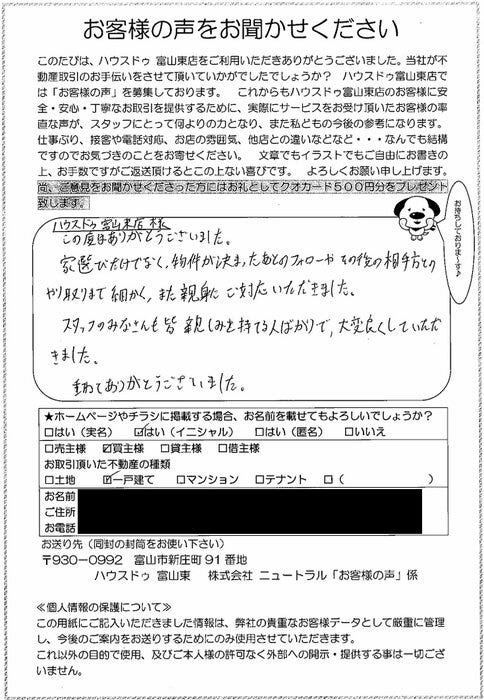 お客様の声をお聞かせください
このたびは、ハウスドゥ 富山東店をご利用いただきありがとうございました。当社が不
動産取引のお手伝いをさせて頂いていかがでしたでしょうか？　ハウスドゥ富山東店で
は「お客様の声」を募集しております。　これからもハウスドゥ富山東店のお客様に安
全・安心・丁寧なお取引を提供するために、実際にサービスをお受け頂いたお客様の率
直な声が、スタッフにとって何よりの力となり、また私どもの今後の参考になります。
仕事ぶり、接客や電話対応、お店の雰囲気、他店との違いなどなど・・・なんでも結構
ですのでお気づきのことをお寄せください。　文章でもイラストでもご自由にお書きの
上、お手数ですがご返送頂けるとこの上ない喜びです。　よろしくお願い申し上げます。
尚、ご意見をお聞かせくださった方にはお礼としてクオカード５００円分をプレゼント
致します。
お待ちしておりま～す♪
ハウスドゥ 富山東店 様
この度はありがとうございました。
家選びだけでなく、物件が決まったあとのフォローや その後の相手方との
やり取りまで 細かく、また 親身に ご対応いただきました。
スタッフのみなさんも 皆 親しみを持てる人ばかりで、大変良くしていただ
きました。
重ねてありがとうございました。
★ホームページやチラシに掲載する場合、お名前を載せてもよろしいでしょうか？
□はい（実名）　☑はい（イニシャル）　□はい（匿名）　□いいえ
□売主様　☑買主様　□貸主様　□借主様
お取引頂いた不動産の種類
□土地　☑一戸建て　□マンション　□テナント　□（　　　　）
お名前
ご住所
お電話
お送り先（同封の封筒をお使い下さい）
〒930-0992　富山市新庄町 91 番地
ハウスドゥ 富山東　株式会社 ニュートラル「お客様の声」係
≪個人情報の保護について≫
この用紙にご記入いただきました情報は、弊社の貴重なお客様データとして厳重に管理
し、今後のご案内をお送りするためにのみ使用させていただきます。
これ以外の目的で使用、及びご本人様の許可なく外部への開示・提供する事は一切ござ
いません。